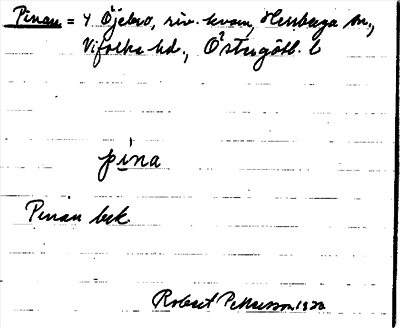 Pinan = 4 Öjebro, riv. kvarn, Herrberga sn.,
Vifolka hd., Östergötl. l
pina
Pinan bek
Robert Pettersson 1932